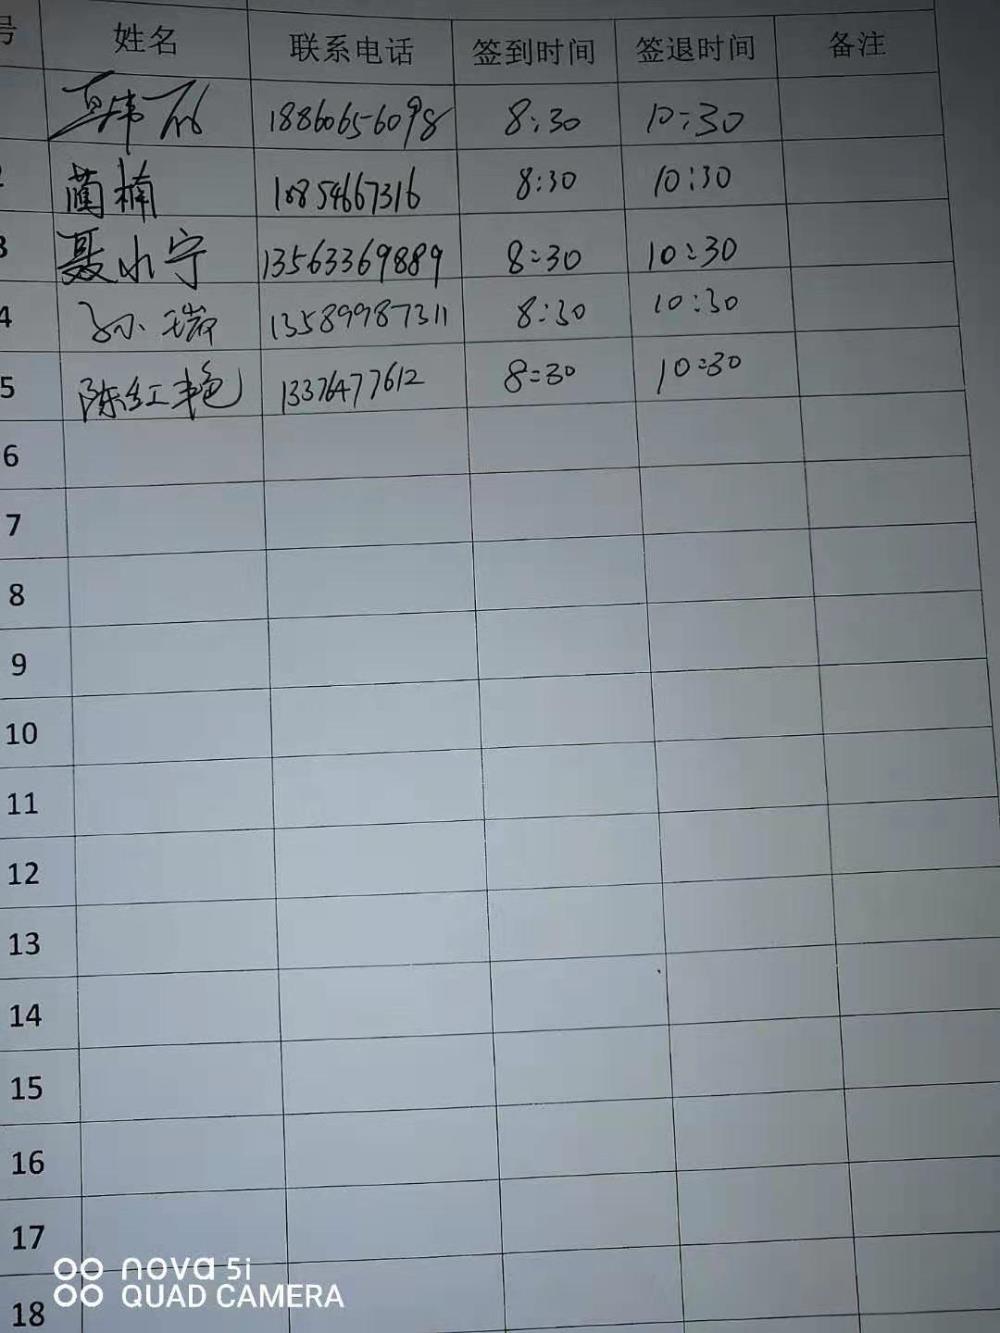 号 姓名 联系电话 签到时间 签退时间 备注
18860656098 8:30 10:30
2 蔺楠 18854667316 8:30 10:30
3 聂小宁 13563369889 8:30 10:30
4 孙瑞 13589987311 8:30 10:30
5 陈红艳 13376477612 8:30 10:30
6
7
8
9
10
11
12
13
14
15
16
17
18
nova 5i
QUAD CAMERA